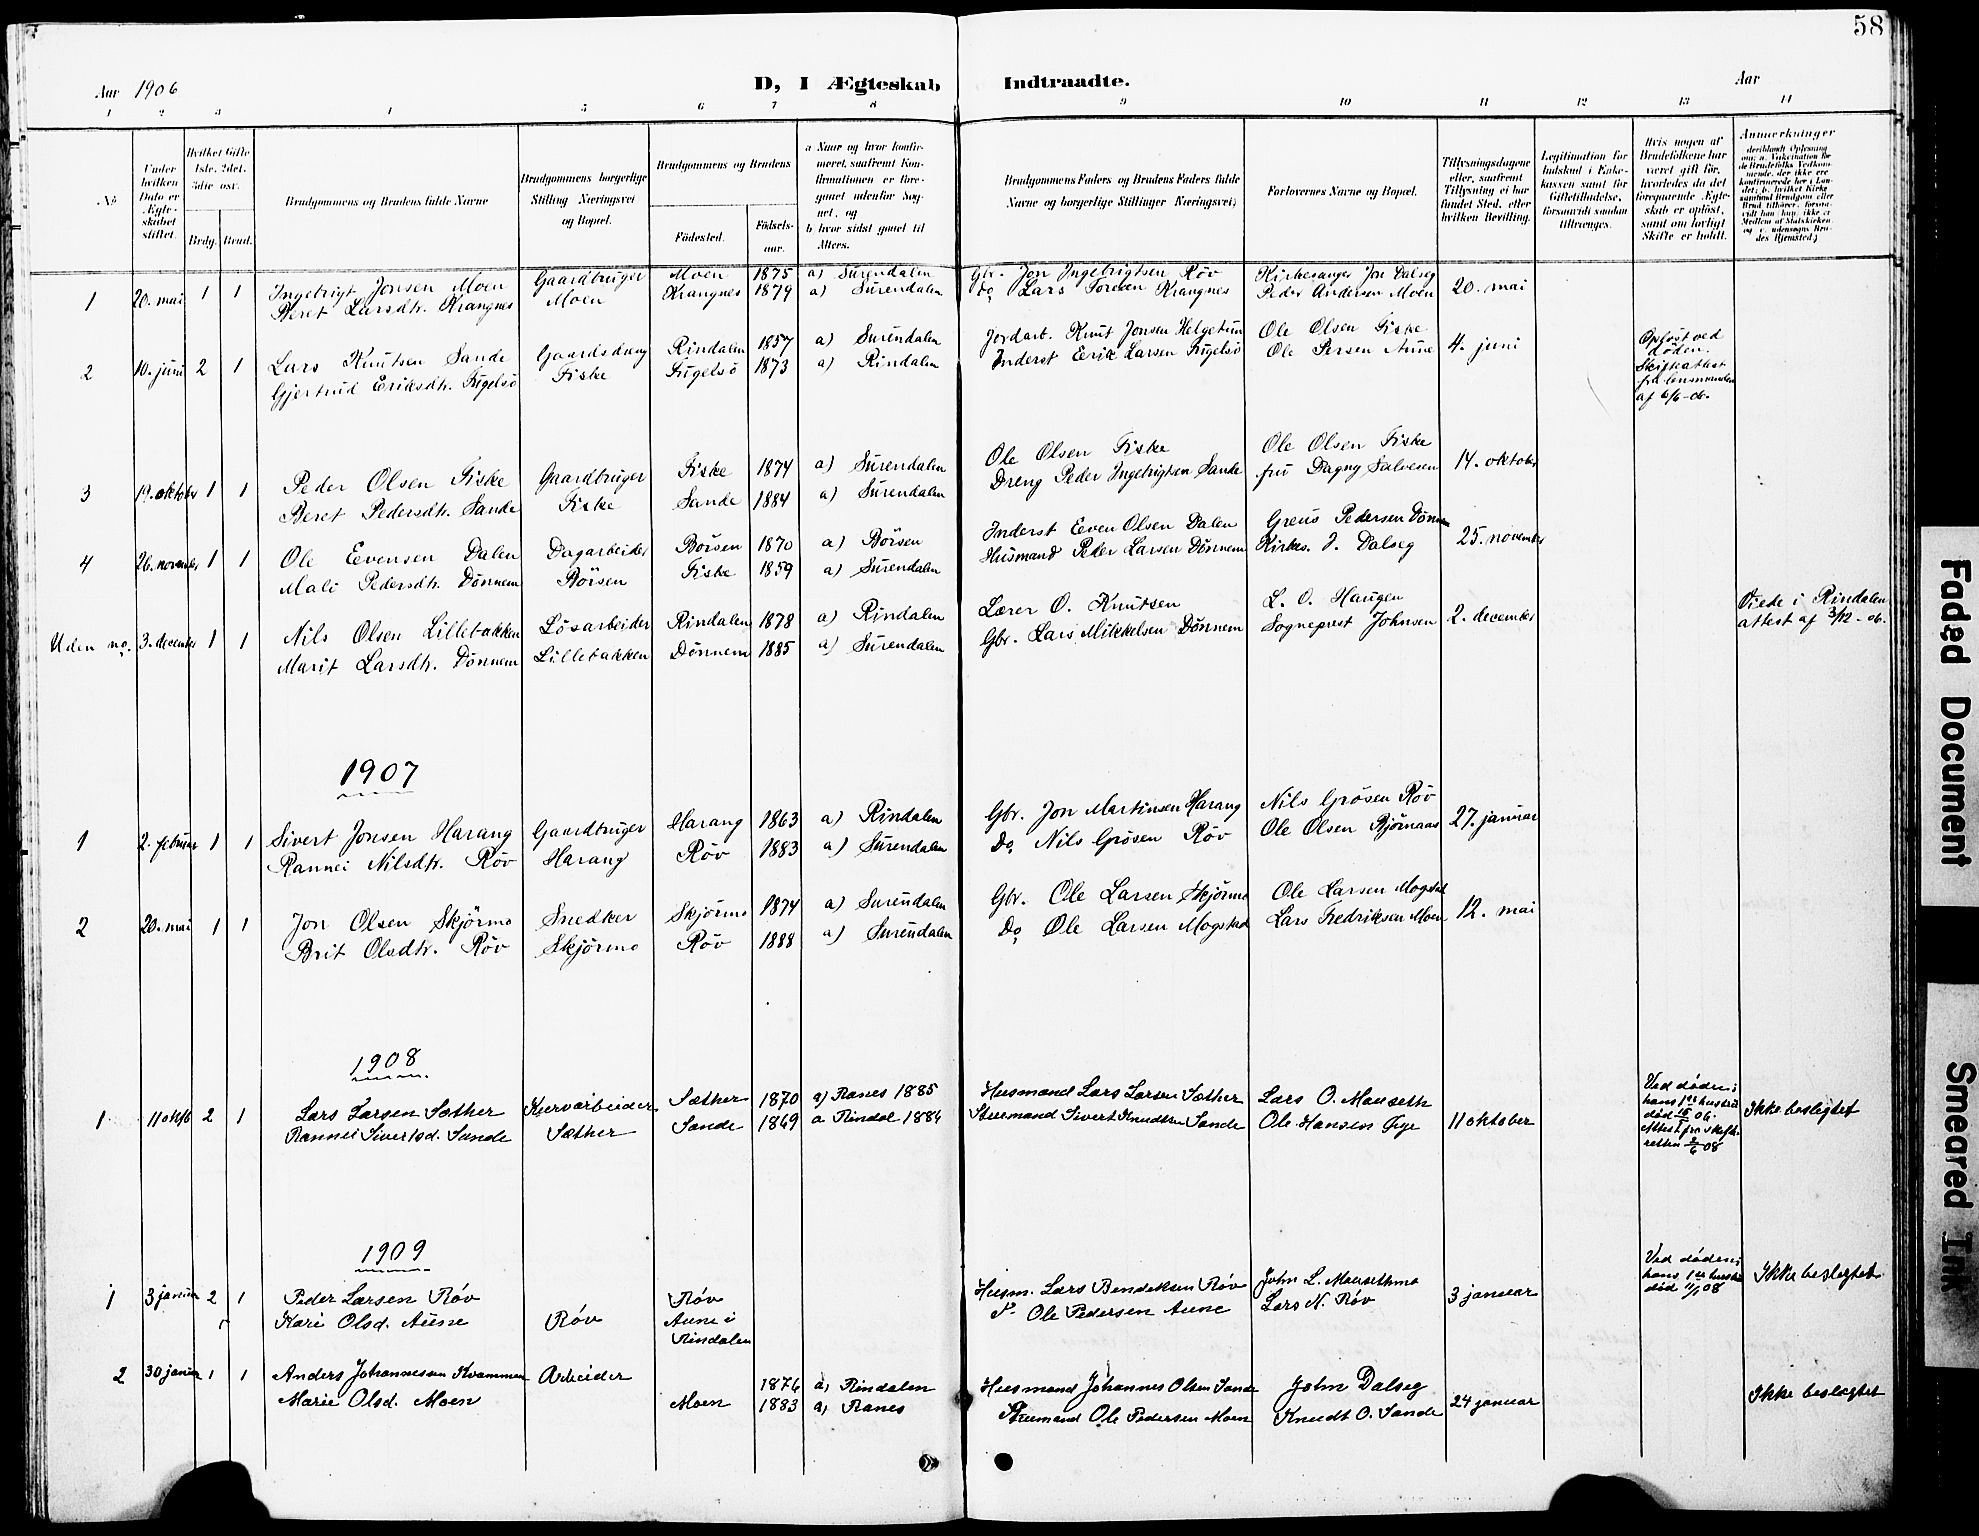 58
Aar 1906
D, I Ægteskab Indtraadte.
Aar
1 2 3 4 5 6 7 8 9 10 11 12 13 14
No.
Under hvilken Dato er Ægteskabet stiftet.
Hvilket Gifte 1ste, 2det, 3die osv.
Brdg. Brud.
Brudgommens og Brudens fulde Navne
Brudgommens borgerlige Stilling Næringsvei og Bopæl.
Brudgommens og Brudens
Fødested.
Fødselsaar.
a Naar og hvor konfirmeret, saafremt Konfirmationen er foregaaet udenfor Sognet, og
b hvor sidst gaaet til Alters.
Brudgommens Faders og Brudens Faders fulde Navne og borgerlige Stillinger Næringsvei;
Forlovernes Navne og Bopæl.
Tillysningsdagene eller, saafremt Tillysning ei har fundet Sted, efter hvilken Bevilling.
Legitimation for Indskud i Enkekassen samt for Giftetilladelse, forsaavidt saadan tiltrænges.
Hvis nogen af Brudefolkene har været gift før, hvorledes da det foregaaende Ægteskab er opløst, samt om lovligt Skifte er holdt.
Anmærkninger
1 20. mai 1 1 Ingebrigt Jonsen Moen Gaardbruger Moen 1875 a) Surendalen Gbr. Jon Ingebrigtsen Røv Kirkesanger Jon Dalseg 20. mai
Beret Larsdtr. Krangnes Moen Krangnes 1879 a) Surendalen Do Lars Toresen Krangnes Peder Andersen Moen
2 10. juni 2 1 Lars Knutsen Sande Gaardsdreng Rindalen 1857 a) Surendalen Jordarb. Knut Jonsen Helgetun Ole Olsen Fiske 4. juni Opløst ved
Gjertrud Eriksdtr. Fugelsö Fiske Fugelsö 1873 a) Rindalen Inderst Erik Larsen Fugelsö Ole Persen Aune døden.
Skifteattest
fra lensmanden
af 6/6-06.
3 19. oktober 1 1 Peder Olsen Fiske Gaardbruger Fiske 1874 a) Surendalen Ole Olsen Fiske Ole Olsen Fiske 14. oktober
Beret Pedersdtr. Sande Fiske Sande 1884 a) Surendalen Dreng Peder Ingebrigtsen Sande fru Dagny Salvesen
4 26. november 1 1 Ole Evensen Dalen Dagarbeider Börsen 1870 a) Börsen Inderst Even Olsen Dalen Greus Pedersen Dönnem 25. november
Mali Pedersdtr. Dönnem Börsen Fiske 1859 a) Surendalen Husmand Peder Larsen Dönnem Kirkes. J. Dalseg
Uden no. 3. december 1 1 Nils Olsen Lillebakken Løsarbeider Rindalen 1878 a) Rindalen Lærer O. Knutsen L. O. Haugen 2. december Viede i Rindalen
Marit Larsdtr. Dönnem Lillebakken Dönnem 1885 a) Surendalen Gbr. Lars Mikkelsen Dönnem Sogneprest Johnsen attest af 3/12-06.
1907
1 2. februar 1 1 Sivert Jonsen Harang Gaardbruger Harang 1863 a) Rindalen Gbr. Jon Martinsen Harang Nils Grösen Röv 27. januar
Rannei Nilsdtr. Röv Harang Röv 1883 a) Surendalen Do Nils Grösen Röv Ole Olsen Bjørnaas
2 20. mai 1 1 Jon Olsen Skjörmo Snedker Skjörmo 1874 a) Surendalen Gbr. Ole Larsen Skjörmo Ole Larsen Mogstad 12. mai
Brit Olsdtr. Röv Skjörmo Röv 1888 a) Surendalen Do Ole Larsen Mogstad Lars Fredriksen Moen
1908
1 11 oktb 2 1 Lars Larsen Sæther Kurvarbeider Sæther 1870 a) Ranes 1885 Husmand Lars Larsen Sæther Lars O. Mauseth 11 oktober Ved døden; Ikke beslegtet
Rannei Sivertsd. Sande Sæther Sande 1869 a Rindal 1884 Husmand Sivert Knudtsen Sande Ole Hansen Øye hans 1ste hustru
død 06.
Attest fra skifte-
retten 2/6 08
1909
1 3 januar 2 1 Peder Larsen Röv Röv Röv Husm. Lars Bendiksen Röv John L. Mausethmo 3 januar Ved døden; Ikke beslegtet
Kari Olsd. Aune Aune i Rindalen Do Ole Pedersen Aune Lars N. Röv hans 1ste hustru
død 08
2 30 januar 1 1 Anders Johannessen Kvammen Arbeider 1876 a) Rindalen Husmand Johannes Olsen Sande John Dalseg 24 januar Ikke beslegtet
Marie Olsd. Moen Moen 1883 a) Ranes Husmand Ole Pedersen Moen Knudt O. Sande
Faded Document
Smeared Ink